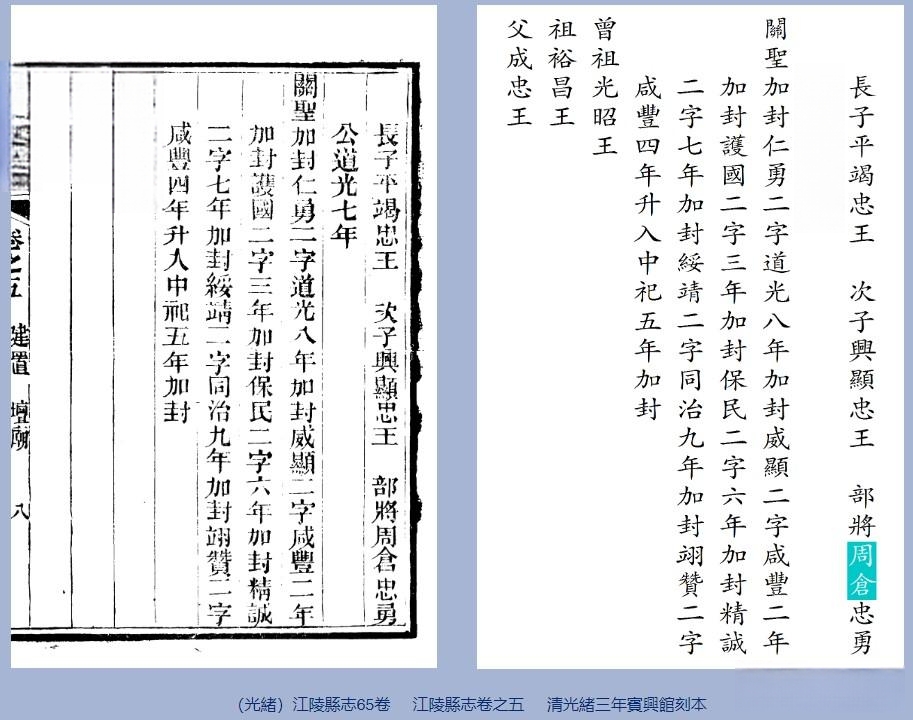 長子平竭忠王　次子興顯忠王　部將周倉忠勇
公道光七年
關聖加封仁勇二字道光八年加封威顯二字咸豐二年
加封護國二字三年加封保民二字六年加封精誠
二字七年加封綏靖二字同治九年加封翊贊二字
咸豐四年升入中祀五年加封
卷之五　建置　壇廟　八
長子平竭忠王　次子興顯忠王　部將周倉忠勇
關聖加封仁勇二字道光八年加封威顯二字咸豐二年
加封護國二字三年加封保民二字六年加封精誠
二字七年加封綏靖二字同治九年加封翊贊二字
咸豐四年升入中祀五年加封
曾祖光昭王
祖裕昌王
父成忠王
（光緒）江陵縣志65卷　江陵縣志卷之五　清光緒三年賓興館刻本